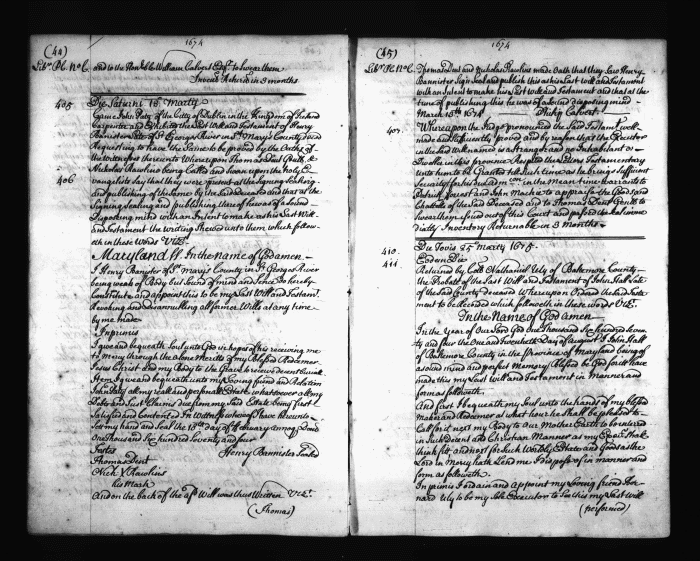 (44)
1674
Lib.r Pl. No. 6.
and to the Hon.ble William Calvert Esq.r to Swear them
Invent. Return in 3 months
405
Die Saturni 13 Marty
Came John Paty of the City of Dublin in the Kingdom of Ireland
Carpenter and Exhibited the Last Will and Testament of Henry
Bannister of St Georges River in St Mary's County dec.d
Requesting to have the Same to be proved by the Oaths of
the witnesses thereunto Whereupon Thomas Dent Gent. &
Nicholas Rawlins being Called and Sworn upon the holy E-
406
vangelists say that they were present at the signing Sealing
and publishing of the Same by the Said Deceased and that at the
Signing Sealing and publishing thereof he was of a Sound
Disposing mind with an Intent to make as his Last Will
and Testament the writing Shewed unto them which follow-
eth in these Words Viz.t
Maryland ss. In the name of God amen
I Henry Banister of St. marys County in St Georges River
being weak of Body but Sound of mind and Sence Do hereby
Constitute and appoint this to be my Last Will and Testam.t
Revoking and Disannulling all former Wills at any time
by me made
Inprimis
I give and bequeath my Soul unto God in hopes of his receiving me
to Mercy through the alone Merits of my Blessed Redeemer
Jesus Christ and my Body to the Grave to receive decent buriall
Item I give and bequeath unto my Loving friend and Relation
John Paty all my reall and personall Estate whatsoever all my
Debts and Just Claims due from my Said Estate being first
Satisfied and Contented In Witness whereof I have hereunto
Set my hand and Seal the 18th day of February annoq Domi
One thousand Six hundred Seventy and four
Testes Henry Bannister Sealed
Thomas Dent
Nich X Rawlins
his Mark
And on the back of the afd Will was thus Written Viz.t
(Thomas)
(45)
1674
Lib.r Pl. No. 6.
Thomas Dent and Nicholas Rawlins made Oath that they Saw Henry
Bannister Sign Seal and publish this as his Last Will and Testament
with an Intent to make his Last Will and Testament and that at the
time of publishing this he was of a Sound disposing mind
March 13th 1674 Philip Calvert
407.
Whereupon the Judge pronounced the Said Testam.t well
made and Sufficiently proved and by reason that the Executor
in the Said Will named is a Stranger and no Inhabitant or
Dweller in this province Respited the Letters Testamentary
unto him to be Granted till Such time as he brings Sufficient
Security for his due adm.con in the Mean time Warrants to
Richard and John Mackie to appraise the Good and
Chattels of the Said Deceased and to Thomas Dent Gent. to
swear them issued out of this Court and passed the Same im-
diatly Inventory Returnable in 3 Months
410.
Die Jovis 25 Marty 1675.
Eodem Die
411.
Returned by Coll Nathaniel Uty of Baltemore County
the Probate of the Last Will and Testament of John Hall Late
of the Said County deceased Whereupon Ordered the Said Testa
ment to be Recorded which followeth in these words Viz.t
In the Name of God amen
In the Year of Our Lord God One thousand Six hundred Seven-
ty and four the One and Twentieth Day of August I John Hall
of Baltemore County in the Province of Maryland being of
a Sound mind and perfect Memory Blessed be God for it have
made this my Last Will and Testament in Manner and
form as followeth.
And first I bequeath my Soul unto the hands of my Blessed
Maker and Redeemer at what hour he Shall be pleased to
Call for it next my Body to Our Mother Earth to be interred
in Such Decent and Christian Manner as my Exec.rs Shall
think fit and most for Such Worldly Estate and Goods as the
Lord in Mercy hath Lend me I dispose of in manner and
form as followeth.
In primis I ordain and appoint my Loving friend Ber-
nard Uty to be my Sole Executor to See this my Last Will
(performed)